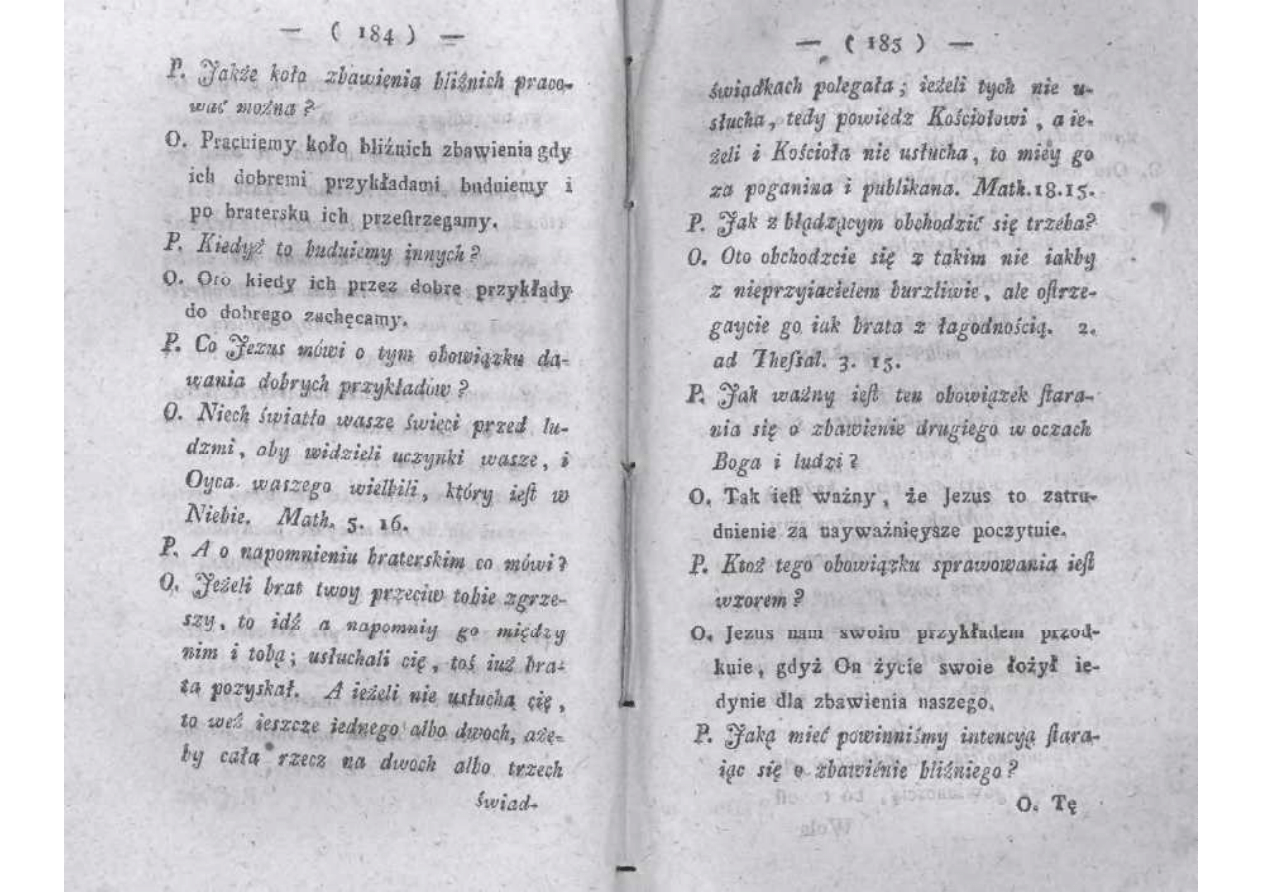 — ( 184 ) —
P. Jakże koło zbawienia bliźnich praco-
wać można?
O. Pracuiemy koło bliźnich zbawienia gdy
ich dobremi przykładami buduiemy i
po bratersku ich przeſtrzegamy.
P. Kiedyż to buduiemy innych?
O. Oto kiedy ich przez dobre przykłady
do dobrego zachęcamy.
P. Co Jezus mówi o tym obowiązku da-
wania dobrych przykładów?
O. Niech światło wasze święci przed lu-
dzmi, aby widzieli uczynki wasze, i
Oyca waszego wielbili, który ieſt w
Niebie. Math. 5. 16.
P. A o napomnieniu braterskim co mówi?
O. Jeżeli brat twoy przeciw tobie zgrze-
szy, to idź a napomniy go między
nim i tobą; usłuchali cię, toś iuż bra-
ta pozyskał. A ieżeli nie usłucha cię,
to weź ieszcze iednego albo dwoch, aże-
by cała rzecz na dwoch albo trzech
świad-
— ( 185 ) —
świadkach polegała; ieżeli tych nie u-
słucha, tedy powiedz Kościołowi, a ie-
żeli i Kościoła nie usłucha, to miey go
za poganina i publikana. Math. 18. 15.
P. Jak z błądzącym obchodzić się trzeba?
O. Oto obchodzcie się z takim nie iakby
z nieprzyiacielem burzliwie, ale oſtrze-
gaycie go iak brata z łagodnością. 2.
ad Theſsal. 3. 15.
P. Jak ważny ieſt ten obowiązek ſtara-
nia się o zbawienie drugiego w oczach
Boga i ludzi?
O. Tak ieſt ważny, że Jezus to zatru-
dnienie za nayważnięysze poczytuie.
P. Ktoż tego obowiązku sprawowania ieſt
wzorem?
O. Jezus nam swoim przykładem przod-
kuie, gdyż On życie swoie łożył ie-
dynie dla zbawienia naszego.
P. Jaką mieć powinniśmy intencyą ſtara-
iąc się o zbawienie bliźniego?
O. Tę